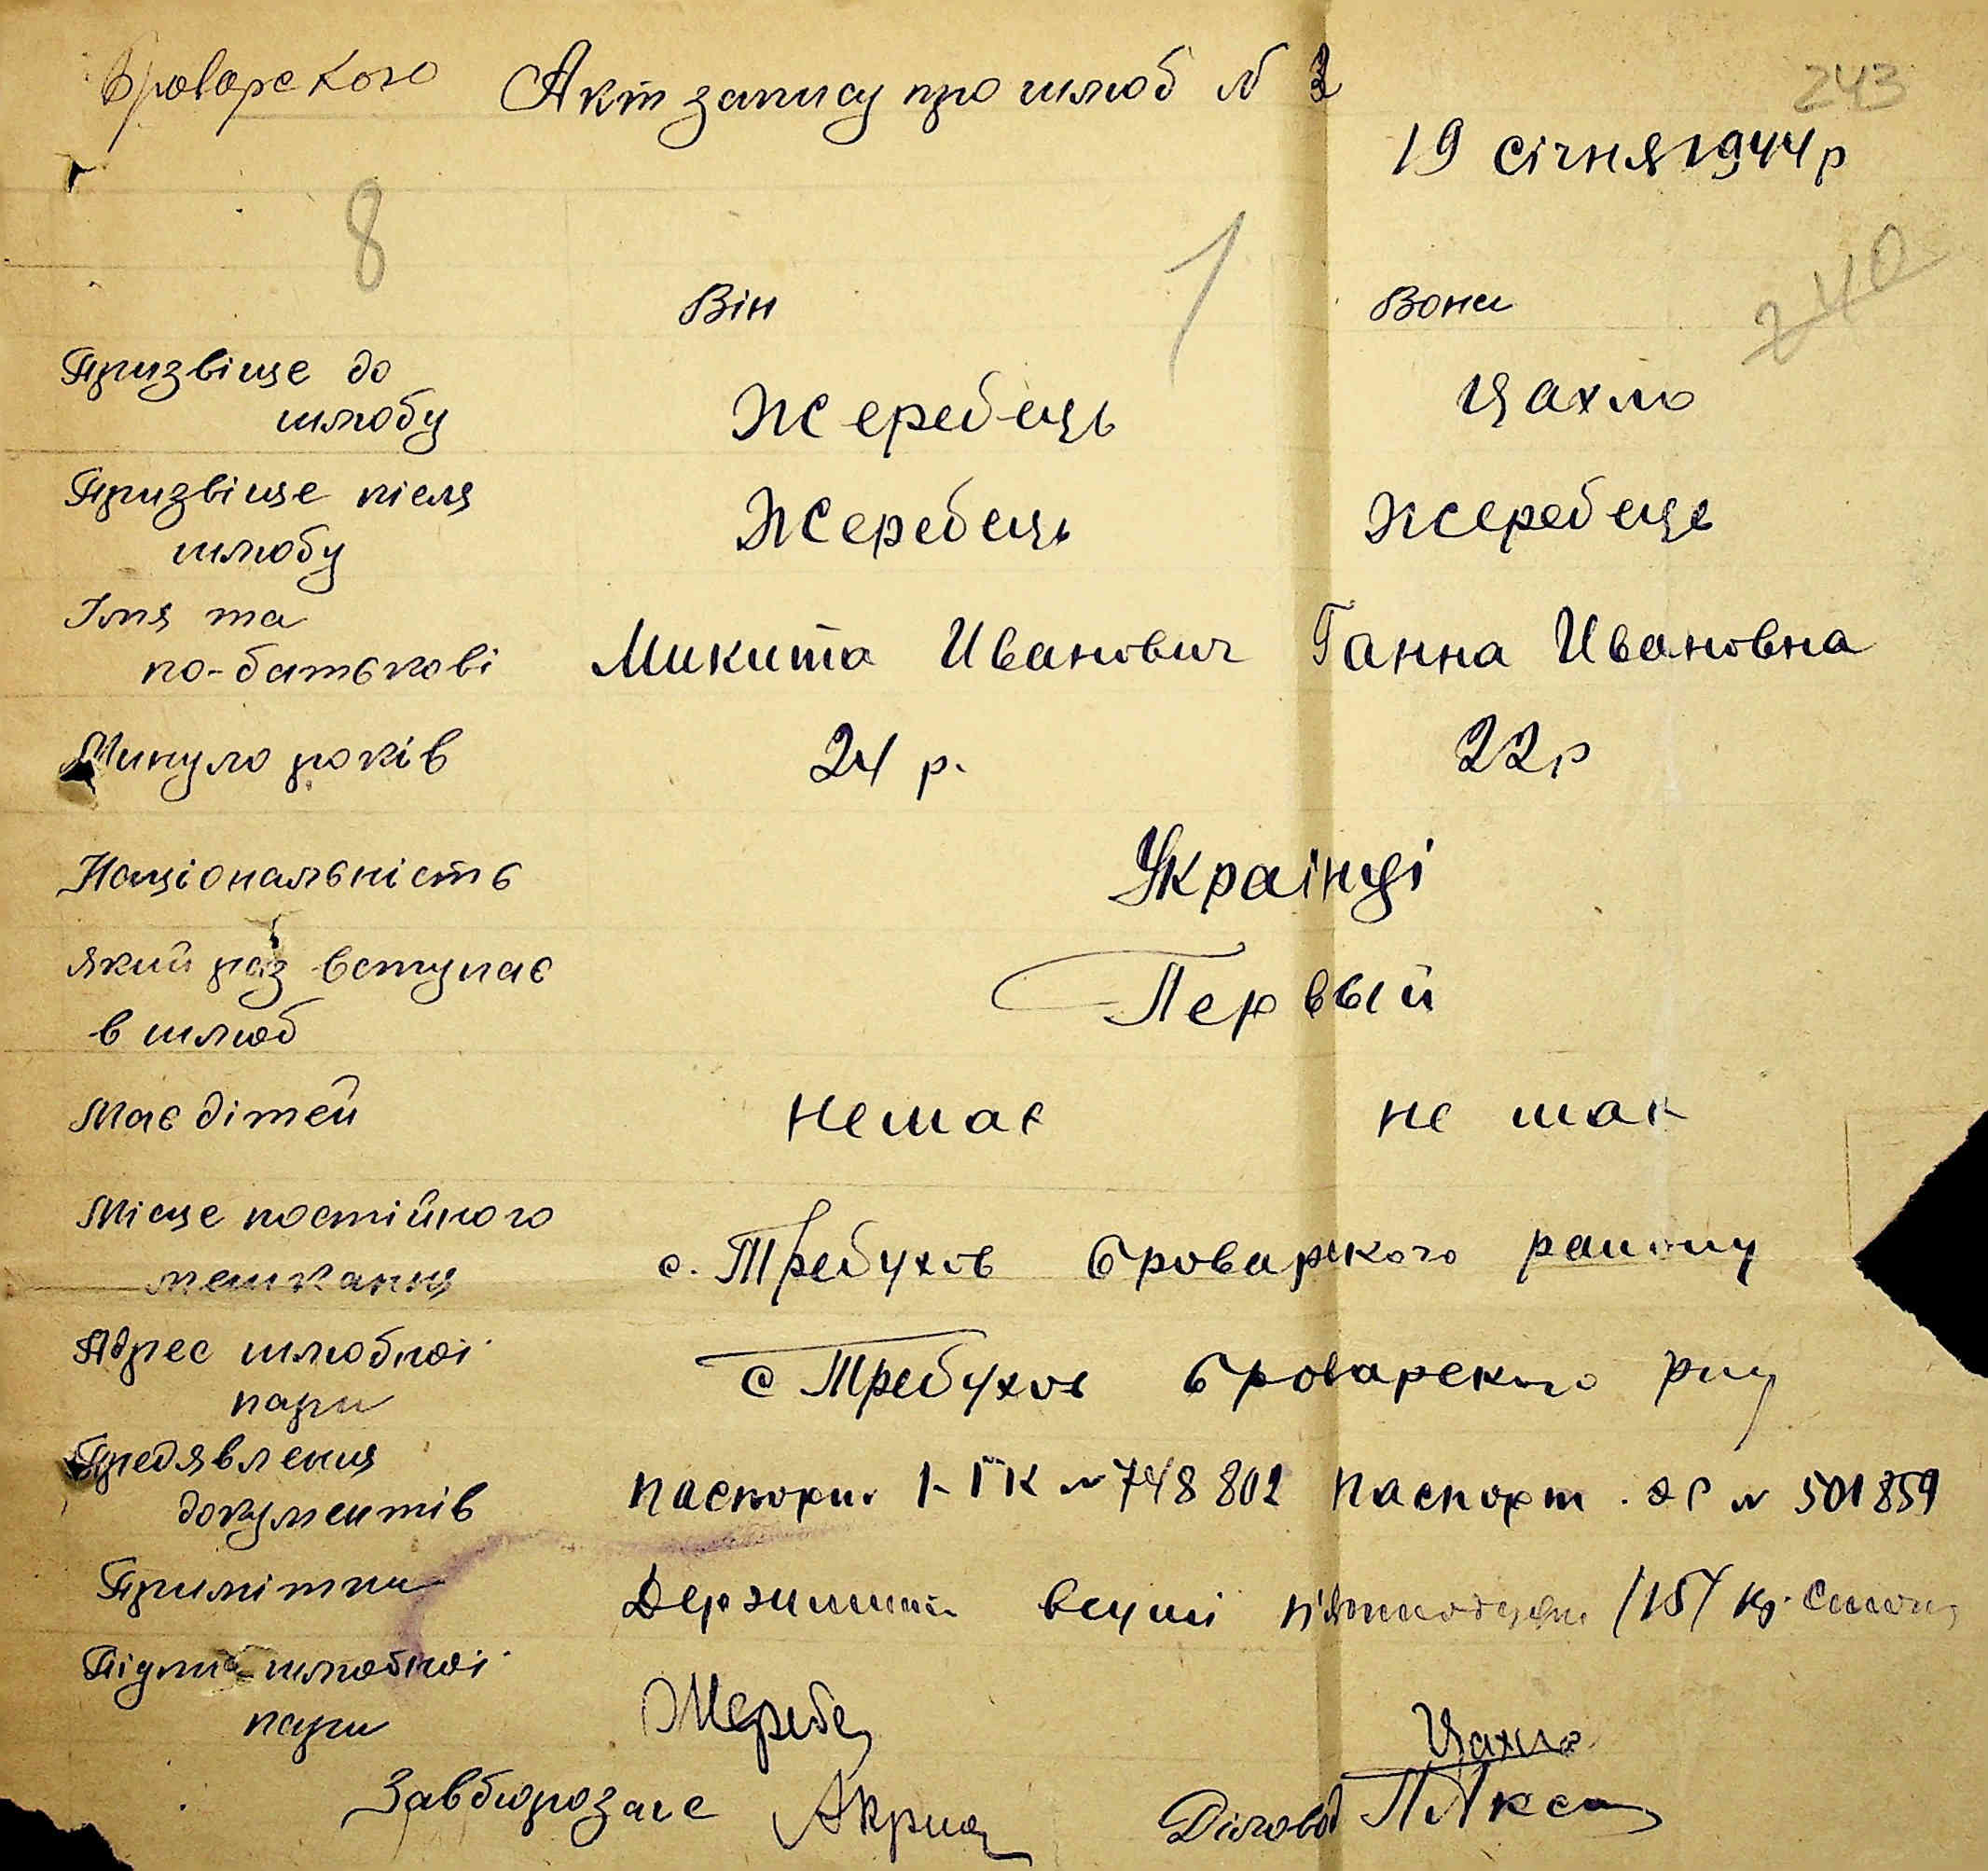 Броварского Акт запису про шлюб №
243
19 січня 1944 р
8 1
240
Він Вона
Призвіще до
шлюбу Жеребець Цахло
Призвіще після
шлюбу Жеребець Жеребець
Імя та
по-батькові Микита Иванович Ганна Ивановна
Минуло років 24 р. 22 р
Національність Украінці
який раз вступає
в шлюб Первый
Має дітей немає не має
Місце постійного
мешкання с. Требухов Броварского району
Адрес шлюбної
пари с Требухов Броварского р-ну
Предявления
документів паспорт № 748802 Паспорт № 501859
Примітки /15/
Підпис шлюбної
пари Жеребец Цахло
Завбюрозагс Діловод